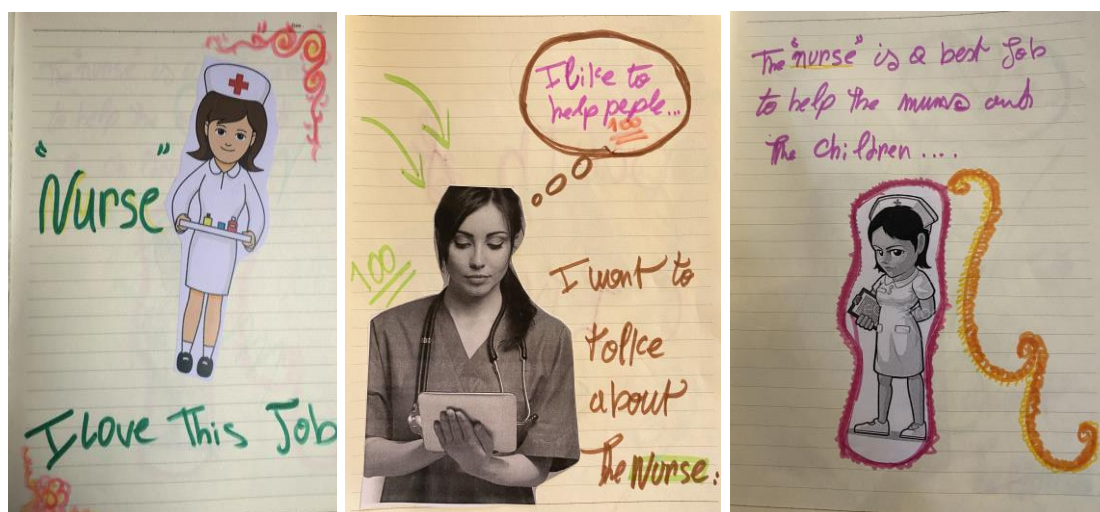 "Nurse"
I Love This Job
I like to
help peple...
100
100
I want to
talke
about
The Nurse.
The "nurse" is a best Job
to help the mums and
The children ....